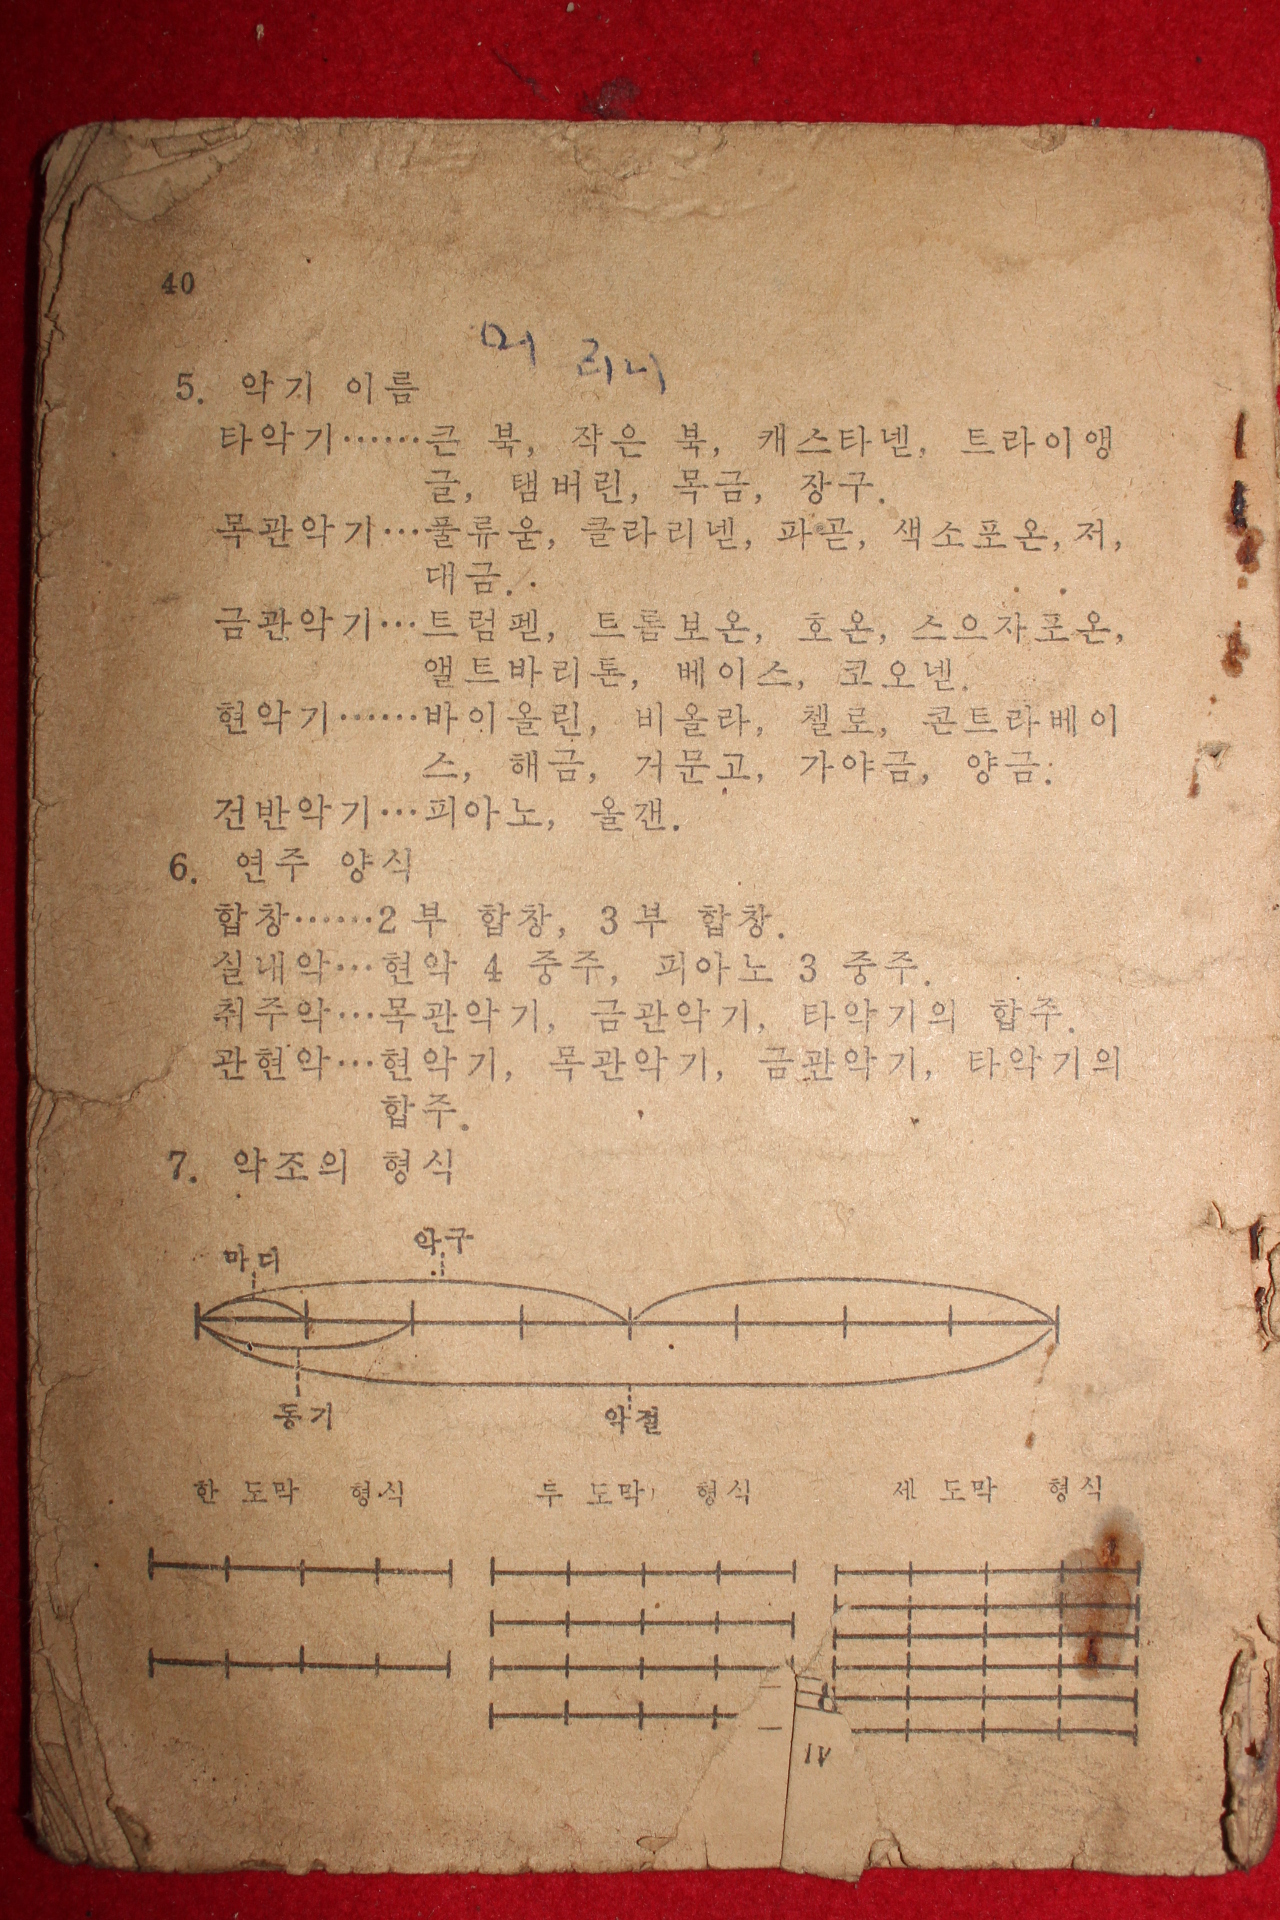 40
머 리니
5. 악기 이름
타악기……큰 북, 작은 북, 캐스타넫, 트라이앵
글, 탬버린, 목금, 장구.
목관악기…풀류욷, 클라리넫, 파곧, 색소포온, 저,
대금.
금관악기…트럼펟, 트롬보온, 호온, 스으자포온,
앨트바리톤, 베이스, 코오넫.
현악기……바이올린, 비올라, 첼로, 콘트라베이
스, 해금, 거문고, 가야금, 양금.
건반악기…피아노, 올갠.
6. 연주 양식
합창……2부 합창, 3부 합창.
실내악…현악 4 중주, 피아노 3 중주.
취주악…목관악기, 금관악기, 타악기의 합주.
관현악…현악기, 목관악기, 금관악기, 타악기의
합주.
7. 악조의 형식
마디 악구
동기 악절
한 도막 형식 두 도막 형식 세 도막 형식